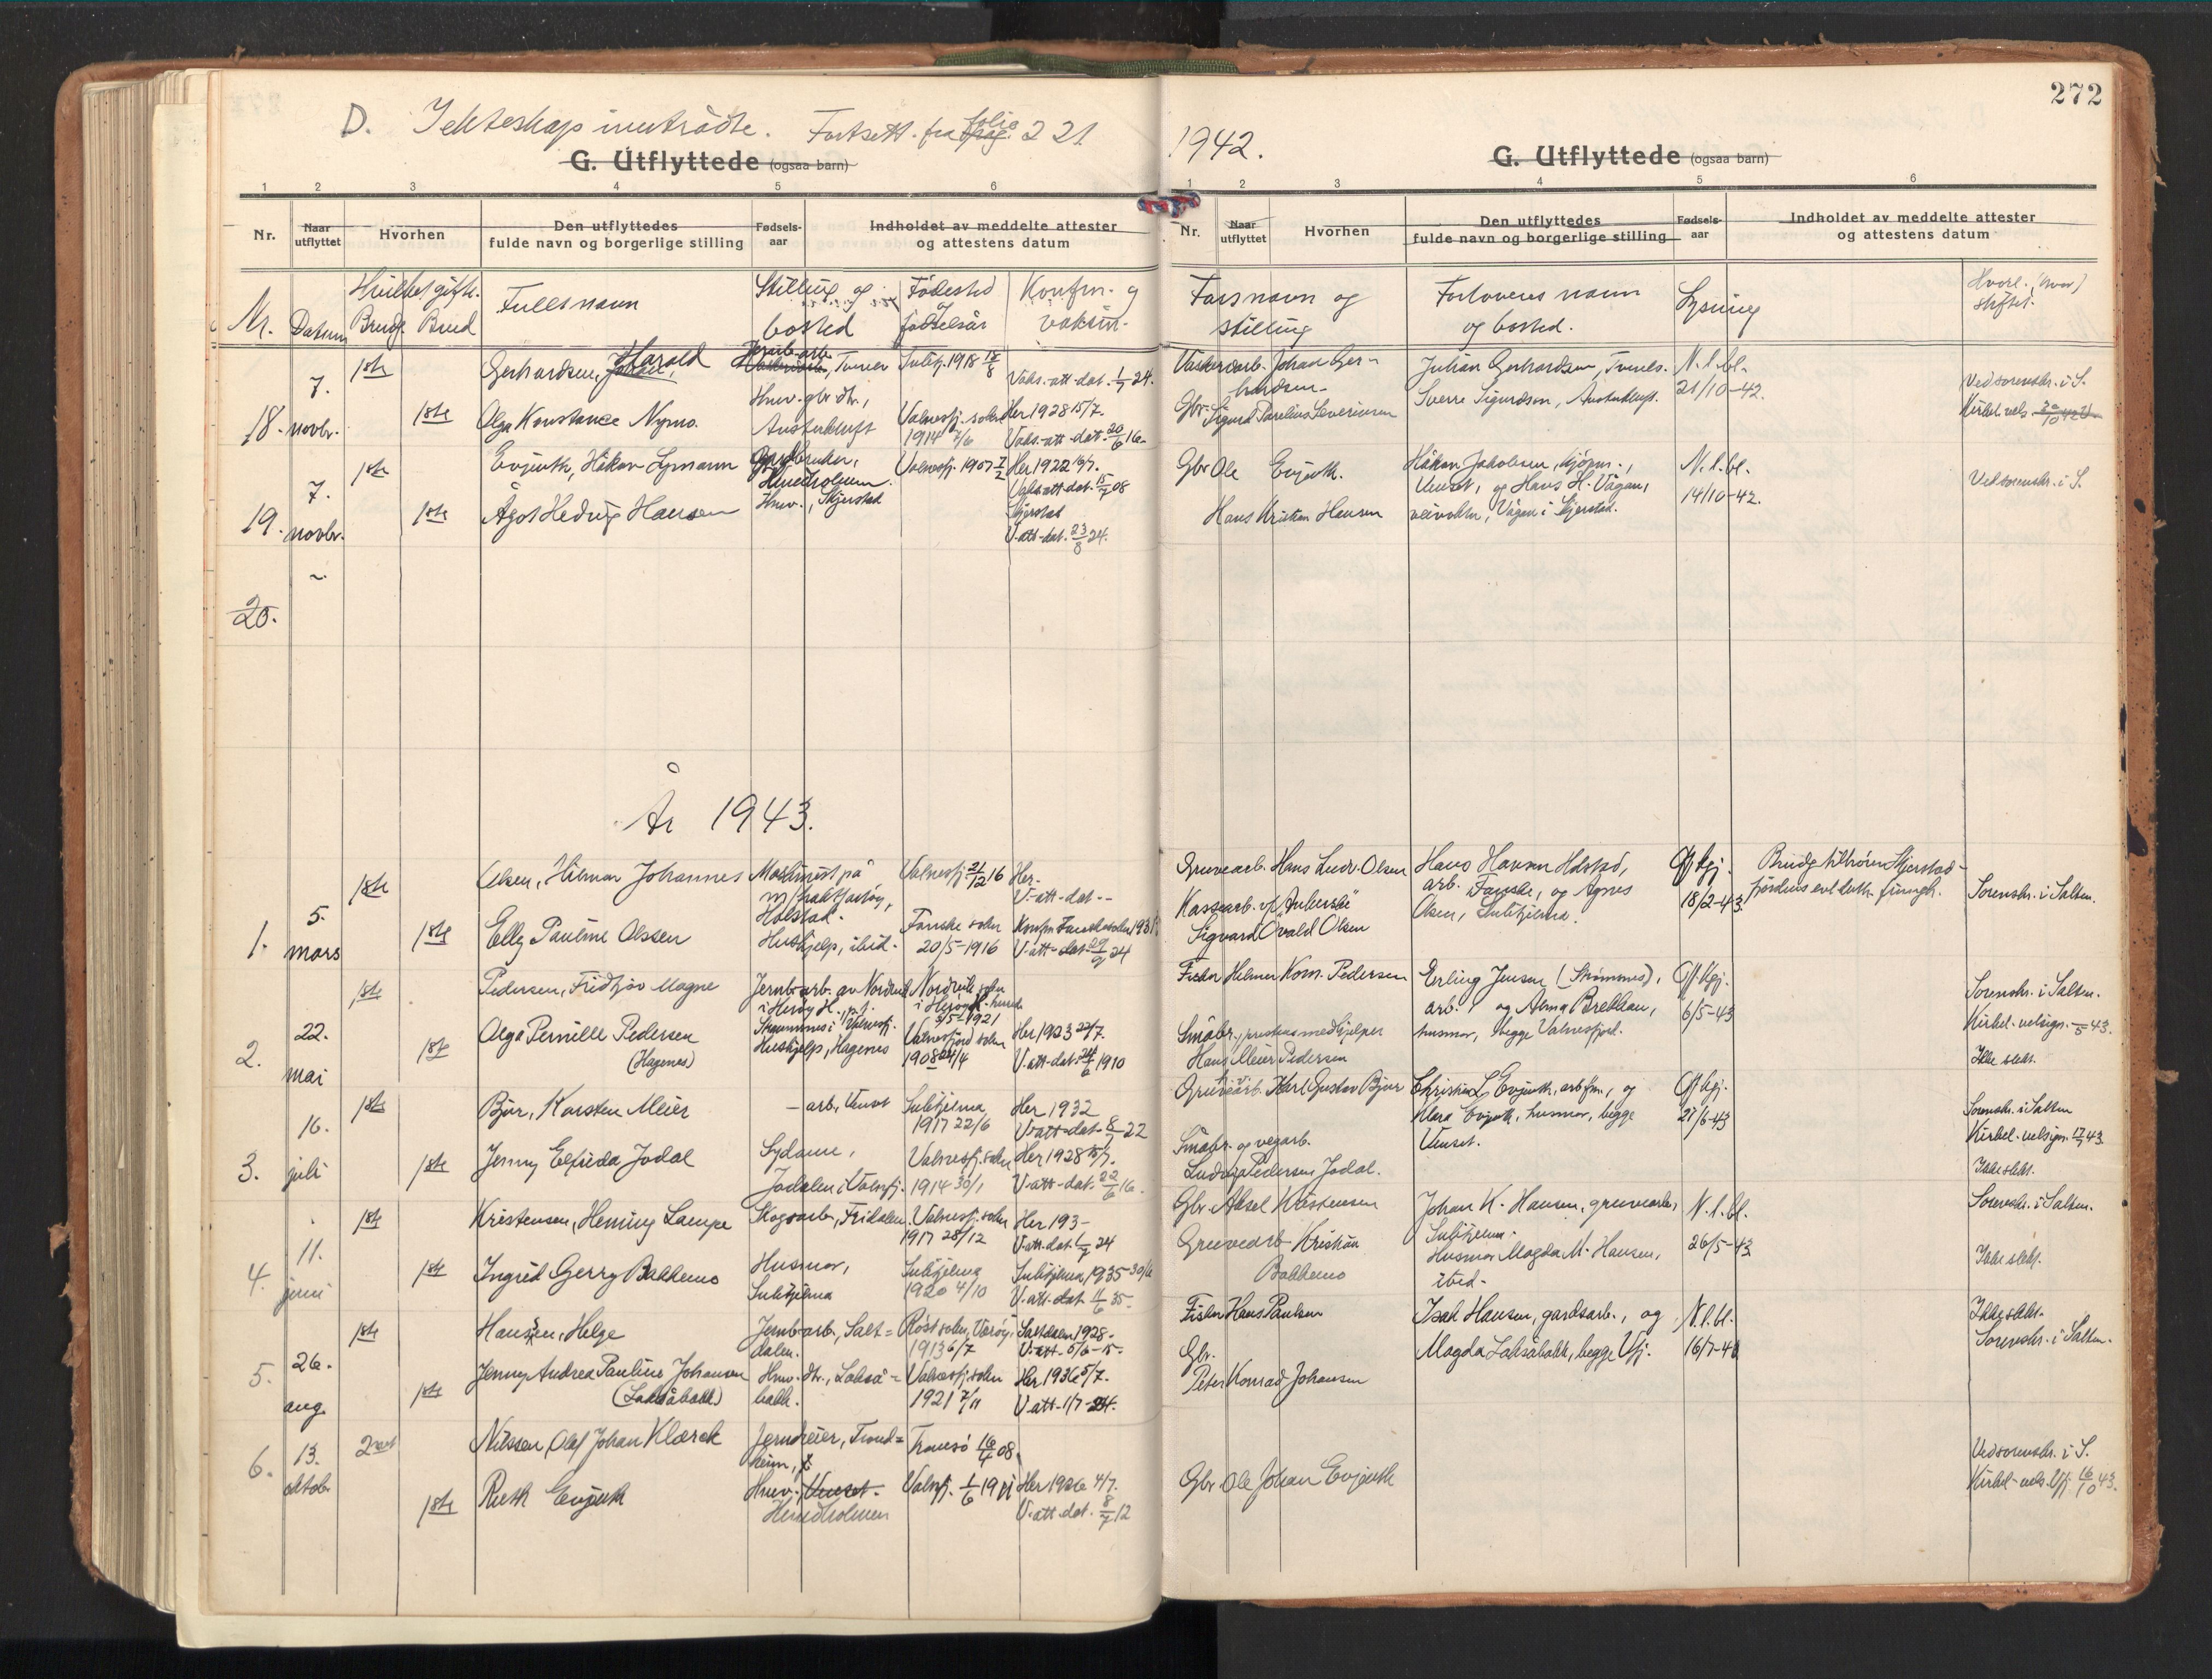 D. Ekteskap inntrådte. Fortsett. fra folio 221
G. Utflyttede (ogsaa barn)
1 2 3 4 5 6
Nr. Naar utflyttet Hvorhen Den utflyttedes fulde navn og borgerlige stilling Fødsels-aar Indholdet av meddelte attester og attestens datum
Nr. Datum Hvilket gifte. Brudg. Brud Fullt navn Stilling og bosted Fødested og fødselsår Konfm. og vaksin.
18. 7. novbr. 1ste Gerhardsen, Harald Tverer Sulitj. 1918 Vaks.-att-dat. 1/7 24.
1ste Olga Konstance Nymo Husv. gbr. dtr., Austerkluft Valnesfj. sokn 1914 2/6 Her 1928 15/7. Vaks-att-dat. 20/6 16.
19. 7. novbr. 1ste Evjenth, Håkon Lymann Gardbruker, Hundholmen Valnesfj. 1907 7/2 Her 1922 16/7. Vaks att-dat. 15/7 08
1ste Ågot Hedvig Hansen Husv., Skjerstad Skjerstad V-att-dat. 23/8 24.
20.
År 1943.
1. 5. mars 1ste Olsen, Hilmar Johannes Maskinist på m/frakttfartøy, Holstad. Valnesfj. 21/12 16 Her. V-att-dat.-
1ste Elly Pauline Olssen Hushjelp, ibid. Fauske sokn 20/5-1916 Konfm Fauske sokn 1931. V-att-dat. 29/9 24
2. 22. mai 1ste Pedersen, Fridtjov Magne Jernb-arb. i Herøy H. Strømsnes i Valnesfj. 3/5-1921
1ste Olga Pernille Pedersen (Hagenes) Hushjelp, Hagenes Valnesfjord sokn 1908 24/4 Her 1923 22/7. V-att-dat. 24/6 1910
3. 16. juli 1ste Bjør, Karsten Meier - arb., Venset Sulitjelma 1917 22/6 Her 1932 V-att-dat. 8/7 22
1ste Jenny Elfrida Jodal Sydame, Jodalen i Valnesfj. Valnesfj. sokn 1914 30/1 Her 1928 15/7. V-att-dat. 22/6 16.
4. 11. juni 1ste Kristensen, Henning Lampe Skogsarb., Fridalen Valnesfj. sokn 1917 28/12 Her 193- V-att-dat. 1/7 24
1ste Ingrid Gerry Bakkemo Husmor, Sulitjelma Sulitjelma 1920 4/10 Sulitjelma 1935 30/6 V-att-dat. 11/6 35-
5. 26. aug. 1ste Hansen, Helge Jernb-arb., Salt= dalen. Røst sokn, Værøy, 1913 6/7 Saltdalen 1928- V-att- 5/6-15-
1ste Jenny Andrea Pauline Johansen (Laksåbakk) Husv. dtr., Lakså= bakk. Valnesfj. sokn 1921 7/11 Her 1936 5/7. V-att-1/7-24.
6. 13. oktob. 2net Nilssen, Olaf Johan Klæreck Jerndreier, Trond= heim, Tromsø 16/4 08.
1ste Ruth Evjenth Husv., Venset. Hundholmen Valnesfj. 1/6 1911 Her 1926 4/7. V-att-dat. 8/7 12
272
1942.
G. Utflyttede (ogsaa barn)
1 2 3 4 5 6
Nr. Naar utflyttet Hvorhen Den utflyttedes fulde navn og borgerlige stilling Fødsels-aar Indholdet av meddelte attester og attestens datum
Fars navn og stilling Forlovers navn og bosted. Lysning Hvorl. (hvor) stiftet.
Johan Gerhardsen. Julian Gerhardsen, Tveres. N.l.bl. 21/10-42. Ved sorenskr. i S.
Gbr. Sigurd Parelius Severinsen Sverre Sigurdsen, Austerkluft. Kirkel. vels. 30/10 42
Gbr. Ole Evjenth. Håkon Jakobsen, kjøpm., Venset, og Hans H. Vågan, N.l.bl. 14/10-42. Ved sorenskr. i S.
Hans Kristian Hansen veivokter, Vågan i Skjerstad.
Gruvearb. Hans Ludv. Olsen Hans Hansen Holstad, arb. Fauske, og Agnes Olsen, Sulitjelma. Off. kgj. 18/2-43. Brudg. tilhører Skjerstad- fjordens evl. luth. frimgh. Sorenskr. i Salten.
Kassearb. Sigvard Ovald Olsen
Fisker Helmer Korn. Pedersen Erling Jensen (Strømsnes), arb. og Alma Brekkan, husmor, begge Valnesfjord. Off. kgj. 6/5-43 Sorenskr. i Salten. Kirkel. velsign. -/5 43.
Småbr., Hans Meier Pedersen Ikke slekt.
Gruvearb. Karl Gustav Bjør Christian L. Evjenth, arb.fm., og Klara Evjenth, husmor, begge Venset. Off kgj. 21/6-43 Sorenskr. i Salten Kirkel. velsign. 17/7 43.
Småbr. og vegarb. Ludvig Pedersen Jodal. Ikke slekt.
Gbr. Aksel Kristensen Johan K. Hansen, gruvearb., Sulitjelma. N.l.bl. 26/5-43 Sorenskr. i Salten.
Gruvearb Kristian Bakkemo Husmor Magda M. Hansen, ibid- Ikke slekt.
Fisker Hans Paulsen Isak Hansen, gardsarb., og Magda Laksåbakk, begge Vfj. N.l.bl. 16/7-4 Ikke slekt. Sorenskr. i Salten.
Gbr. Peter Konrad Johansen
Gbr Ole Johan Evjenth Ved sorenskr. i S. Kirkel- vels. Vfj. 16/10 43.